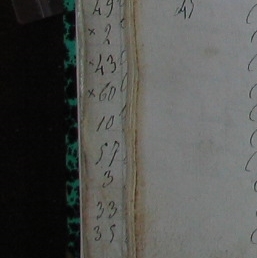 49
× 2
× 43
× 60
10
57
3
33
35